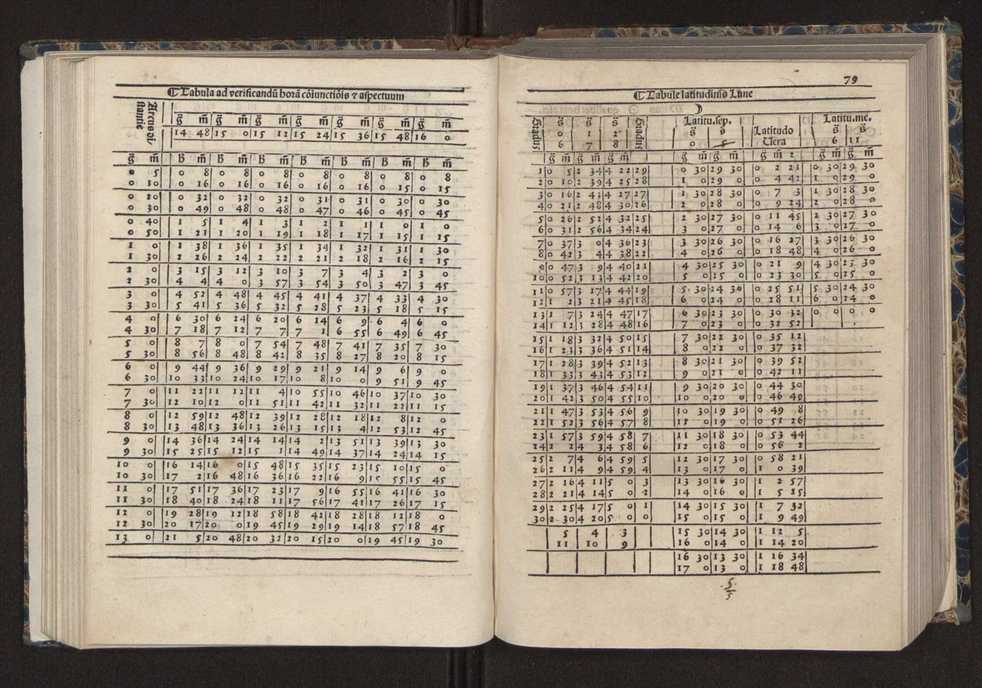 Tabula ad verificandũ horã cõiunctiõis ⁊ aspectuum
g̃ m̃ g̃ m̃ g̃ m̃ g̃ m̃ g̃ m̃ g̃ m̃ g̃ m̃
14 48 15 0 15 12 15 24 15 36 15 48 16 0
g̃ m̃ h m̃ h m̃ h m̃ h m̃ h m̃ h m̃ h m̃
0 5 0 8 0 8 0 8 0 8 0 8 0 8 0 8
0 10 0 16 0 16 0 16 0 16 0 16 0 15 0 15
0 20 0 32 0 32 0 32 0 31 0 31 0 30 0 30
0 30 0 49 0 48 0 48 0 47 0 46 0 45 0 45
0 40 1 5 1 4 1 3 1 2 1 1 1 0 1 0
0 50 1 21 1 20 1 19 1 18 1 17 1 15 1 15
1 0 1 38 1 36 1 35 1 34 1 32 1 31 1 30
1 30 2 26 2 24 2 22 2 21 2 18 2 16 2 15
2 0 3 15 3 12 3 10 3 7 3 4 3 2 3 0
2 30 4 4 4 0 3 57 3 54 3 50 3 47 3 45
3 0 4 52 4 48 4 45 4 41 4 37 4 33 4 30
3 30 5 41 5 36 5 32 5 28 5 23 5 18 5 15
4 0 6 30 6 24 6 20 6 14 6 9 6 4 6 0
4 30 7 18 7 12 7 7 7 1 6 55 6 49 6 45
5 0 8 7 8 0 7 54 7 48 7 41 7 35 7 30
5 30 8 56 8 48 8 42 8 35 8 27 8 20 8 15
6 0 9 44 9 36 9 29 9 21 9 14 9 6 9 0
6 30 10 33 10 24 10 17 10 8 10 0 9 51 9 45
7 0 11 22 11 12 11 4 10 55 10 46 10 37 10 30
7 30 12 10 12 0 11 51 11 42 11 32 11 22 11 15
8 0 12 59 12 48 12 39 12 28 12 18 12 8 12 0
8 30 13 48 13 36 13 26 13 15 13 4 12 53 12 45
9 0 14 36 14 24 14 14 14 2 13 51 13 39 13 30
9 30 15 25 15 12 15 1 14 49 14 37 14 24 14 15
10 0 16 14 16 0 15 48 15 35 15 23 15 10 15 0
10 30 17 2 16 48 16 36 16 22 16 9 15 55 15 45
11 0 17 51 17 36 17 23 17 9 16 55 16 41 16 30
11 30 18 40 18 24 18 11 17 56 17 41 17 26 17 15
12 0 19 28 19 12 18 58 18 41 18 28 18 12 18 0
12 30 20 17 20 0 19 45 19 29 19 14 18 57 18 45
13 0 21 5 20 48 20 32 20 15 20 0 19 45 19 30
79
Tabule latitudinis Lune
Gradus g̃ g̃ g̃ Gradus Latitu.sep. Latitudo Vera Latitu.me.
0 1 2
6 7 8
g̃ m̃ g̃ m̃ g̃ m̃ g̃ m̃ g̃ m̃ g̃ m̃ 2 g̃ m̃ g̃ m̃
1 0 5 2 34 4 22 29 0 30 29 30 0 2 21 0 30 29 30
2 0 10 2 39 4 25 28 1 0 29 0 0 4 42 1 0 29 0
3 0 16 2 43 4 27 27 1 30 28 30 0 7 3 1 30 28 30
4 0 21 2 48 4 30 26 2 0 28 0 0 9 24 2 0 28 0
5 0 26 2 52 4 32 25 2 30 27 30 0 11 45 2 30 27 30
6 0 31 2 56 4 34 24 3 0 27 0 0 14 6 3 0 27 0
7 0 37 3 0 4 36 23 3 30 26 30 0 16 27 3 30 26 30
8 0 42 3 4 4 38 22 4 0 26 0 0 18 48 4 0 26 0
9 0 47 3 9 4 40 21 4 30 25 30 0 21 9 4 30 25 30
10 0 52 3 13 4 42 20 5 0 25 0 0 23 30 5 0 25 0
11 0 57 3 17 4 44 19 5 30 24 30 0 25 51 5 30 24 30
12 1 2 3 21 4 45 18 6 0 24 0 0 28 11 6 0 24 0
13 1 7 3 24 4 47 17 6 30 23 30 0 30 32 0 0 0 0
14 1 12 3 28 4 48 16 7 0 23 0 0 32 52
15 1 18 3 32 4 50 15 7 30 22 30 0 35 12
16 1 23 3 36 4 51 14 8 0 22 0 0 37 32
17 1 28 3 39 4 52 13 8 30 21 30 0 39 52
18 1 33 3 43 4 53 12 9 0 21 0 0 42 11
19 1 37 3 46 4 54 11 9 30 20 30 0 44 30
20 1 42 3 50 4 55 10 10 0 20 0 0 46 49
21 1 47 3 53 4 56 9 10 30 19 30 0 49 8
22 1 52 3 56 4 57 8 11 0 19 0 0 51 26
23 1 57 3 59 4 58 7 11 30 18 30 0 53 44
24 2 2 4 3 4 58 6 12 0 18 0 0 56 2
25 2 7 4 6 4 59 5 12 30 17 30 0 58 21
26 2 11 4 9 4 59 4 13 0 17 0 1 0 39
27 2 16 4 11 5 0 3 13 30 16 30 1 2 57
28 2 21 4 14 5 0 2 14 0 16 0 1 5 15
29 2 25 4 17 5 0 1 14 30 15 30 1 7 32
30 2 30 4 20 5 0 0 15 0 15 0 1 9 49
5 4 3 15 30 14 30 1 12 5
11 10 9 16 0 14 0 1 14 20
16 30 13 30 1 16 34
17 0 13 0 1 18 48